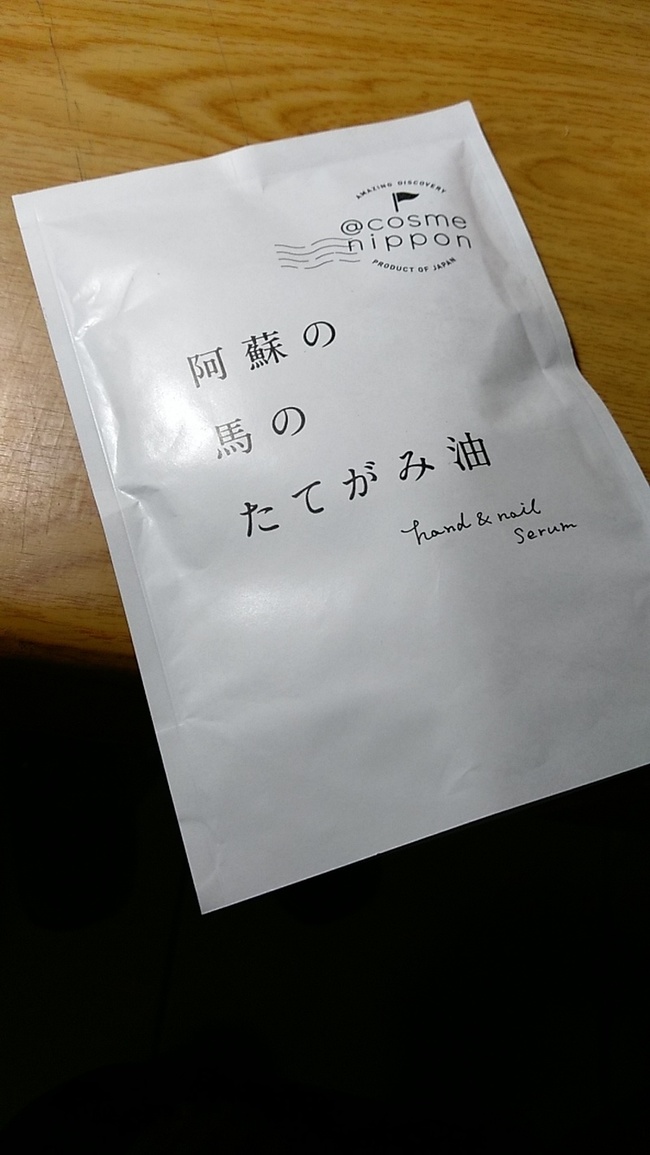 AMAZING DISCOVERY
@cosme
nippon
PRODUCT OF JAPAN
阿蘇の
馬の
たてがみ油
hand & nail
serum